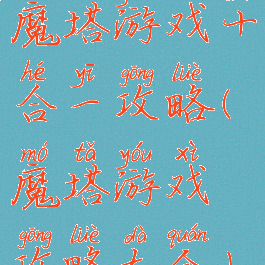 魔塔游戏十
hé yī gōng lüè
合一攻略(
mó tǎ yóu xì
魔塔游戏
gōng lüè dà quán
攻略大全)